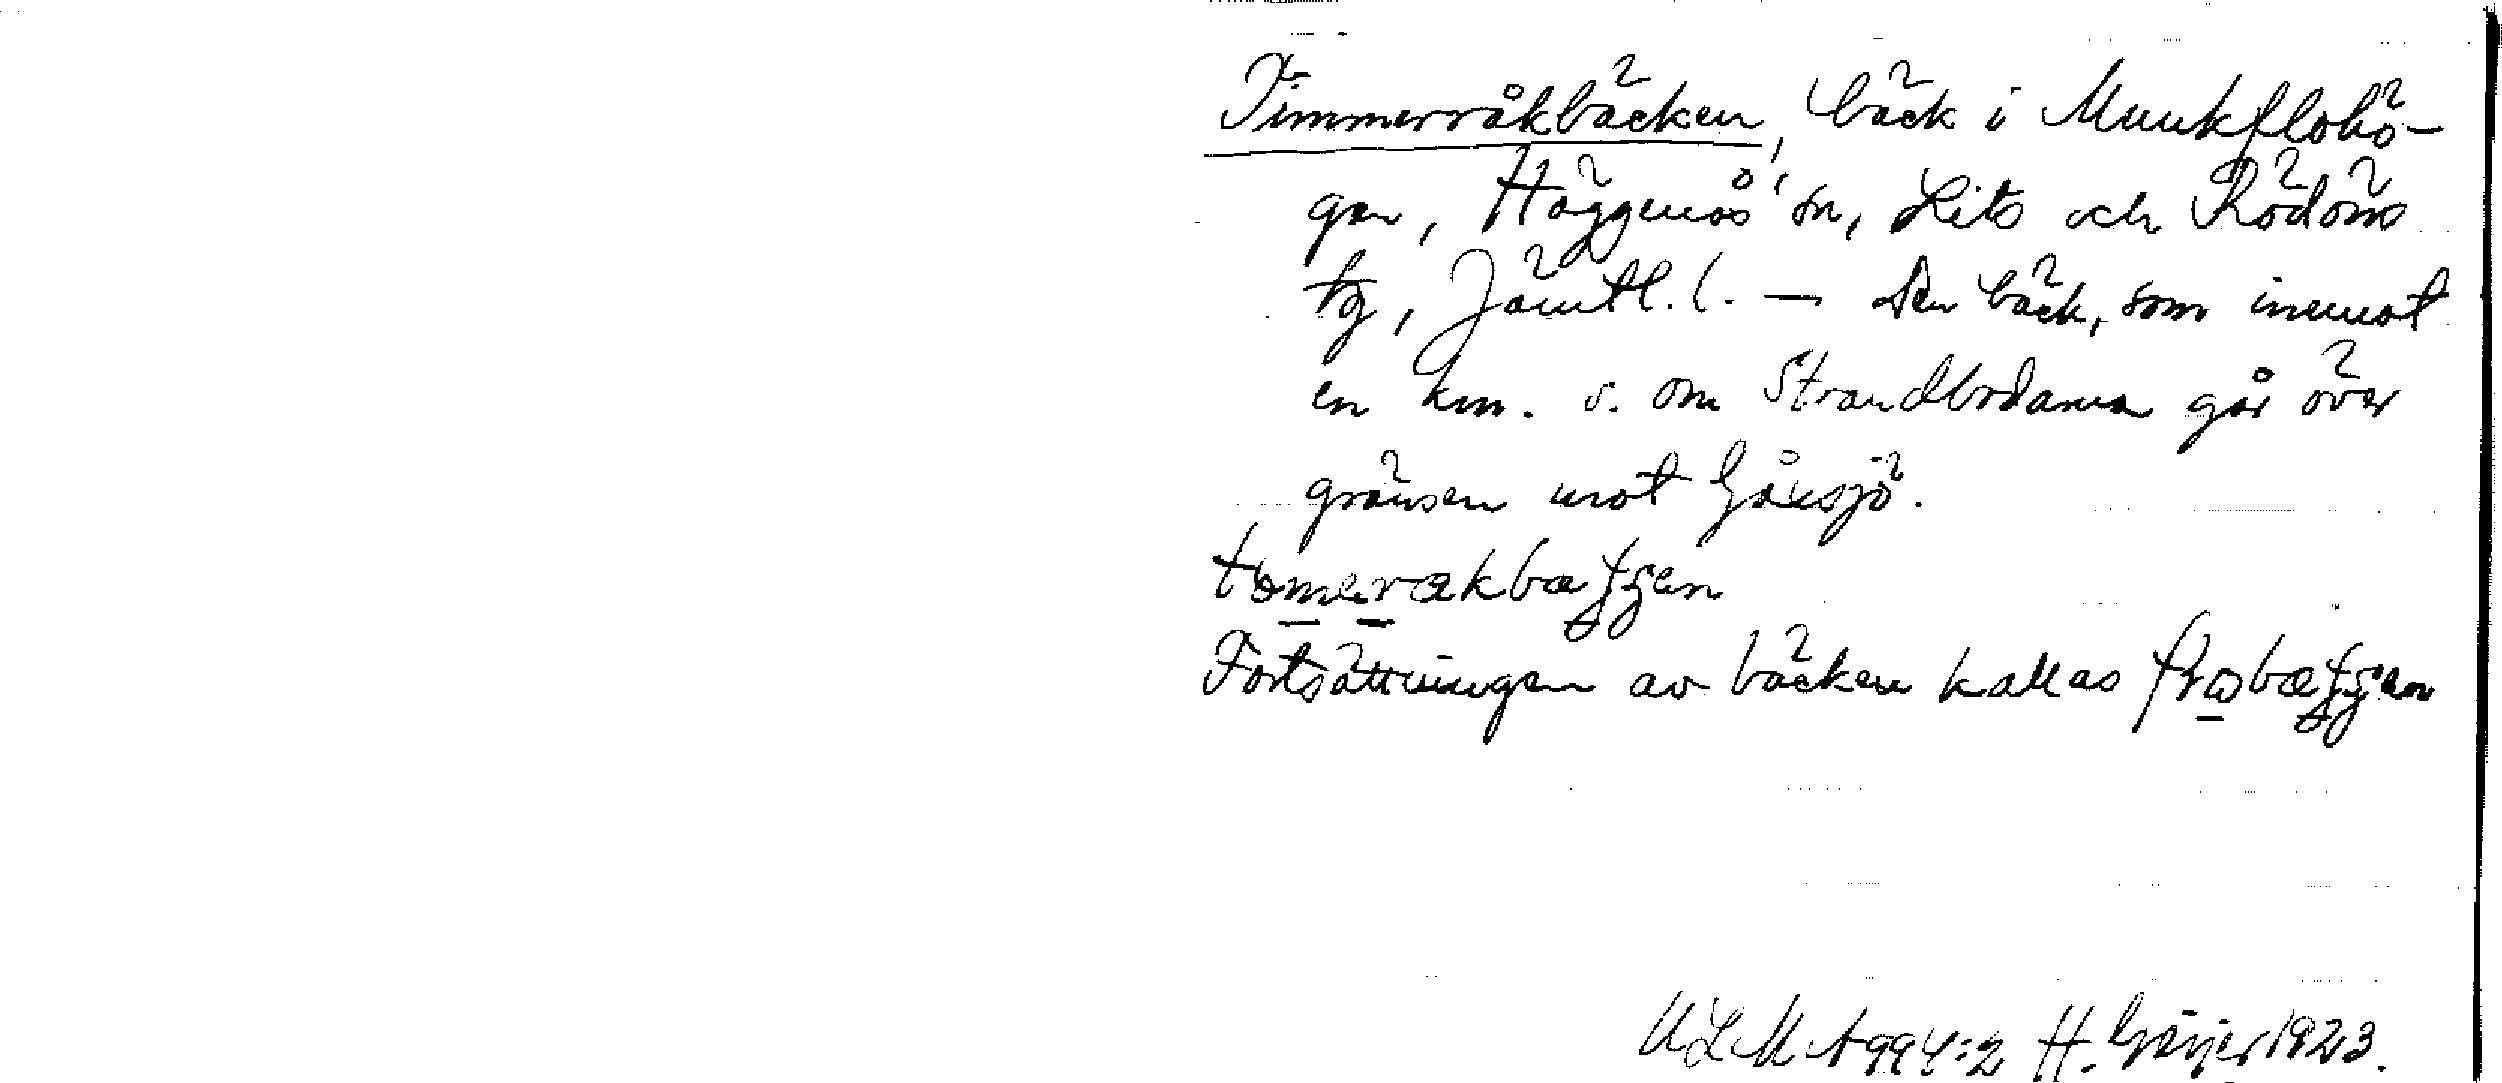 Timmerråkbäcken, bäck i Munkflohö-
gen, Häggenås sn, Lits och Rödöns
tg, Jämtl. l. — Den bäck, som inemot
en km. v. om Strandbodarna går över
gränsen mot Gåxsjö.
Fortsättningen av bäcken kallas
ULMA 994:2 H. Geijer 1923.